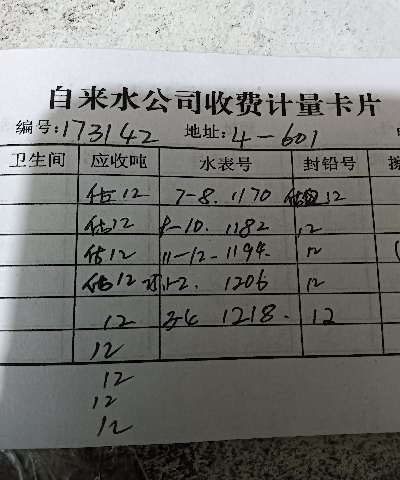 自来水公司收费计量卡片
编号:173142 地址:4-601
卫生间 应收吨 水表号 封铅号
估12 7-8. 1170 12
估12 9-10. 1182 12
估12 11-12- 1194. 12
估12 1-2. 1206 12
12 3-4 1218. 12
12
12
12
12